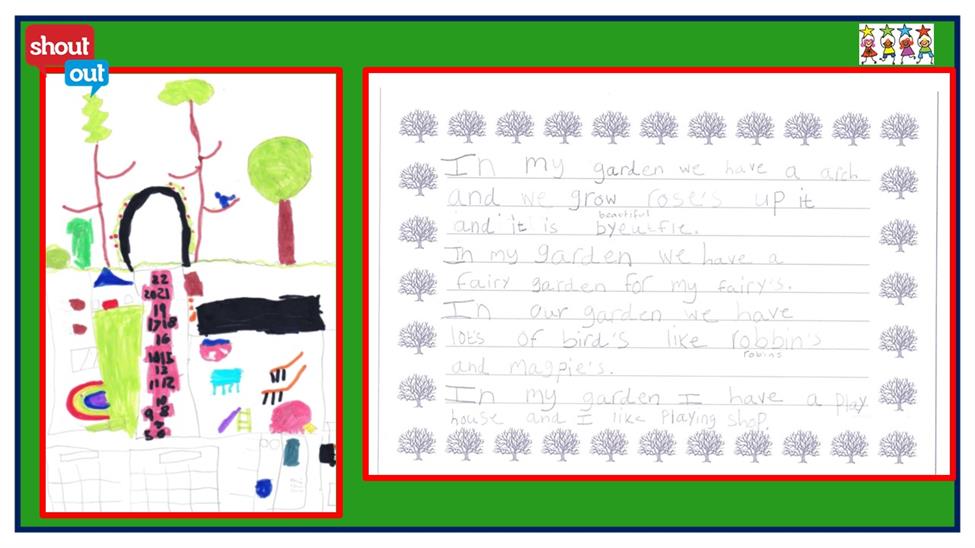 shout
out
22
20 21
19
17 18
16
14 15
13
11 12
10
9 8
7
5 6
In my garden we have a arch
and we grow rose's up it
beautiful
and it is byeutfie.
In my garden we have a
fairy garden for my fairy's.
In our garden we have
lots of bird's like robbin's
robins
and magpie's.
In my garden I have a play
house and I like playing shop.